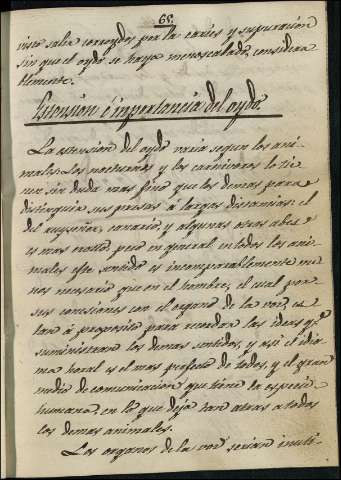 68.
visto salir corroydos por la caries y supuracion
sin que el oydo se haya menoscabado, considera
blemente.
Extension é importancia del oydo.
La extension del oydo varia segun los ani-
males. Los nocturnos y los carnivoros lo tie
nen sin duda mas fino que los demas para
distinguir sus presas á largas distancias: el
del ruyseñor, canario, y algunas otras aves
es mas exacto, pero en general en todos los ani-
males este sentido es incomparablemente me
nos necesario que en el hombre, el cual por
sus conexiones con el organo de la voz, es
tan á proposito para recordar las ideas q.e
suministran los demas sentidos, y asi el idio
ma horal es el mas perfecto de todos, y el gran
medio de comunicacion que tiene la especie
humana, en lo que deja tan atras a todos
los demas animales.
Los organos de la voz serian inuti-